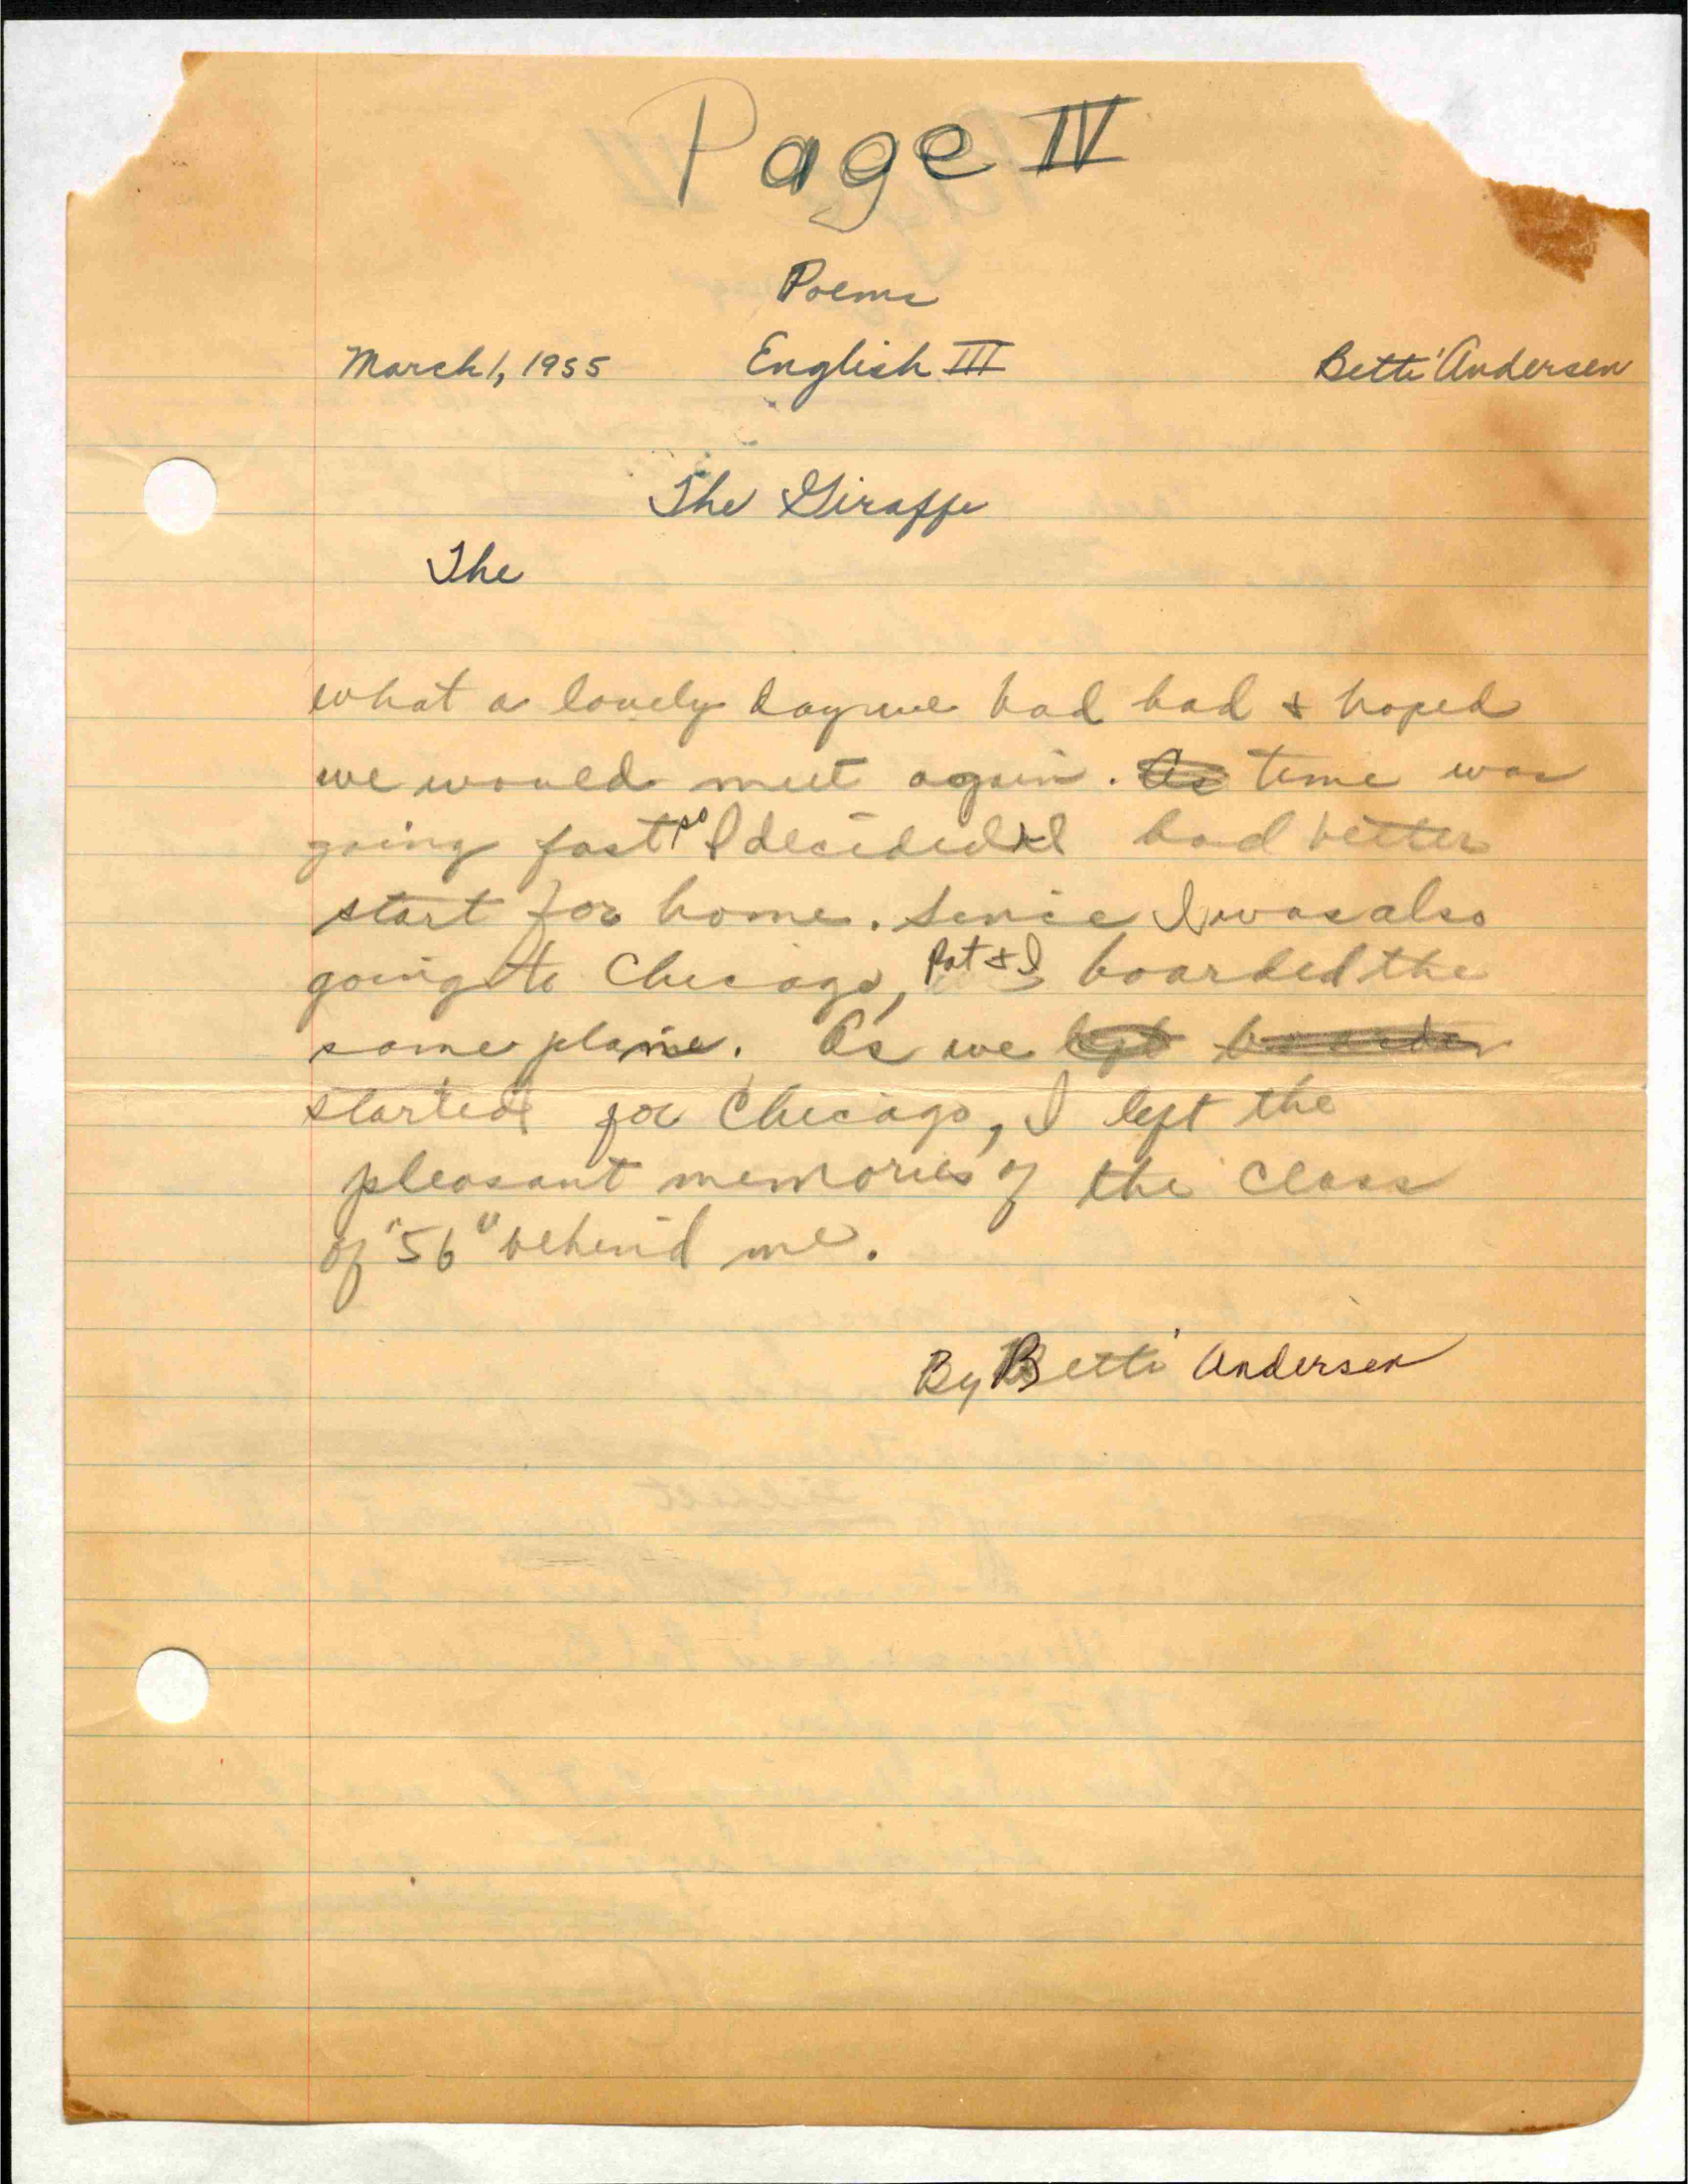 Page IV
Poems
March 1, 1955 English III Betti Andersen
The Giraffe
The
what a lovely day we had had & hoped
we would meet again. As time was
going fast so I decided I had better
start for home. Since I was also
going to Chicago, Pat & I boarded the
same plane. As we left
started for Chicago, I left the
pleasant memories of the class
of "56" behind me.
By Betti Andersen